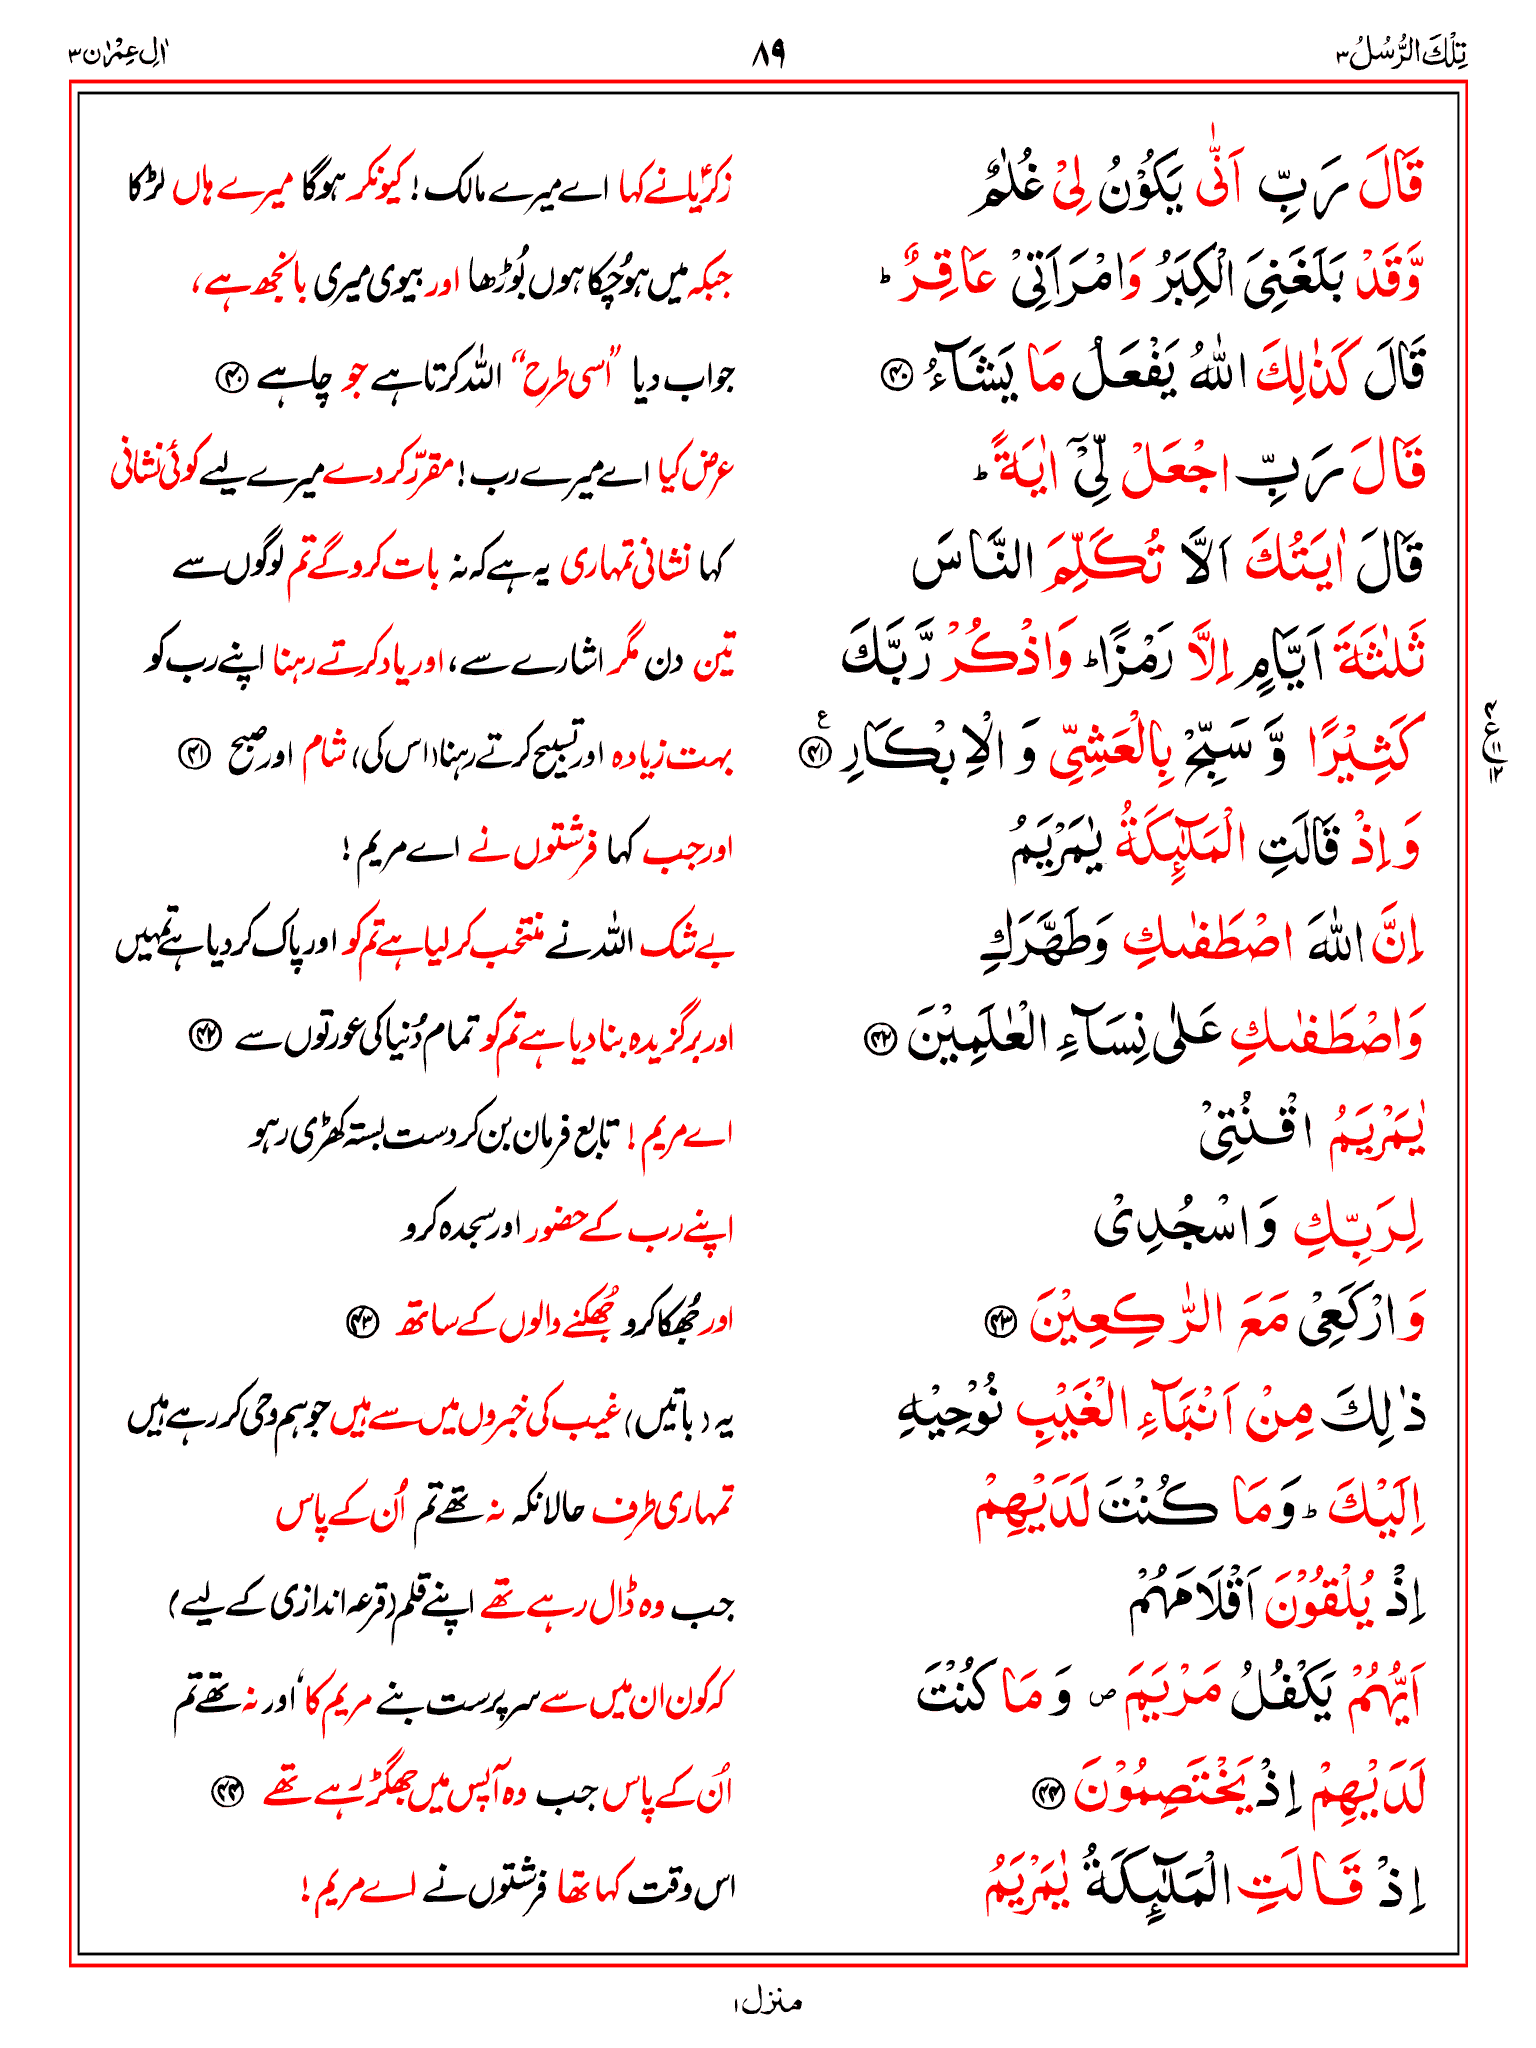 تِلْكَ الرُّسُلُ ٣ ٨٩ اٰلِ عِمْرٰن ٣
قَالَ رَبِّ اَنّٰى يَكُوْنُ لِيْ غُلٰمٌ زکریّا نے کہا اے میرے مالک! کیونکر ہوگا میرے ہاں لڑکا
وَّقَدْ بَلَغَنِيَ الْكِبَرُ وَامْرَاَتِيْ عَاقِرٌ ؕ جبکہ میں ہو چُکا ہوں بُوڑھا اور بیوی میری بانجھ ہے،
قَالَ كَذٰلِكَ اللّٰهُ يَفْعَلُ مَا يَشَآءُ ﴿۴۰﴾ جواب دیا ”اسی طرح“ اللہ کرتا ہے جو چاہے ﴿۴۰﴾
قَالَ رَبِّ اجْعَلْ لِّيْٓ اٰيَةً ؕ عرض کیا اے میرے رب! مقرّر کر دے میرے لیے کوئی نشانی
قَالَ اٰيَتُكَ اَلَّا تُكَلِّمَ النَّاسَ کہا نشانی تمہاری یہ ہے کہ نہ بات کرو گے تم لوگوں سے
ثَلٰثَةَ اَيَّامٍ اِلَّا رَمْزًا ؕ وَاذْكُرْ رَّبَّكَ تین دن مگر اشارے سے، اور یاد کرتے رہنا اپنے رب کو
كَثِيْرًا وَّ سَبِّحْ بِالْعَشِيِّ وَ الْاِبْكَارِ ﴿۴۱﴾ ع بہت زیادہ اور تسبیح کرتے رہنا (اس کی) شام اور صبح ﴿۴۱﴾
۴ ع ۱۱ ۱۲
وَاِذْ قَالَتِ الْمَلٰٓئِكَةُ يٰمَرْيَمُ اور جب کہا فرشتوں نے اے مریم!
اِنَّ اللّٰهَ اصْطَفٰىكِ وَطَهَّرَكِ بے شک اللہ نے منتخب کر لیا ہے تم کو اور پاک کر دیا ہے تمہیں
وَاصْطَفٰىكِ عَلٰى نِسَآءِ الْعٰلَمِيْنَ ﴿۴۲﴾ اور برگزیدہ بنا دیا ہے تم کو تمام دُنیا کی عورتوں سے ﴿۴۲﴾
يٰمَرْيَمُ اقْنُتِيْ اے مریم! تابع فرمان بن کر دست بستہ کھڑی رہو
لِرَبِّكِ وَاسْجُدِيْ اپنے رب کے حضور اور سجدہ کرو
وَارْكَعِيْ مَعَ الرّٰكِعِيْنَ ﴿۴۳﴾ اور جُھکا کرو جُھکنے والوں کے ساتھ ﴿۴۳﴾
ذٰلِكَ مِنْ اَنْۢبَآءِ الْغَيْبِ نُوْحِيْهِ یہ (باتیں) غیب کی خبروں میں سے ہیں جو ہم وحی کر رہے ہیں
اِلَيْكَ ؕ وَمَا كُنْتَ لَدَيْهِمْ تمہاری طرف حالانکہ نہ تھے تم اُن کے پاس
اِذْ يُلْقُوْنَ اَقْلَامَهُمْ جب وہ ڈال رہے تھے اپنے قلم (قرعہ اندازی کے لیے)
اَيُّهُمْ يَكْفُلُ مَرْيَمَ ۖ وَمَا كُنْتَ کہ کون ان میں سے سرپرست بنے مریم کا، اور نہ تھے تم
لَدَيْهِمْ اِذْ يَخْتَصِمُوْنَ ﴿۴۴﴾ اُن کے پاس جب وہ آپس میں جھگڑ رہے تھے ﴿۴۴﴾
اِذْ قَالَتِ الْمَلٰٓئِكَةُ يٰمَرْيَمُ اس وقت کہا تھا فرشتوں نے اے مریم!
منزل ۱